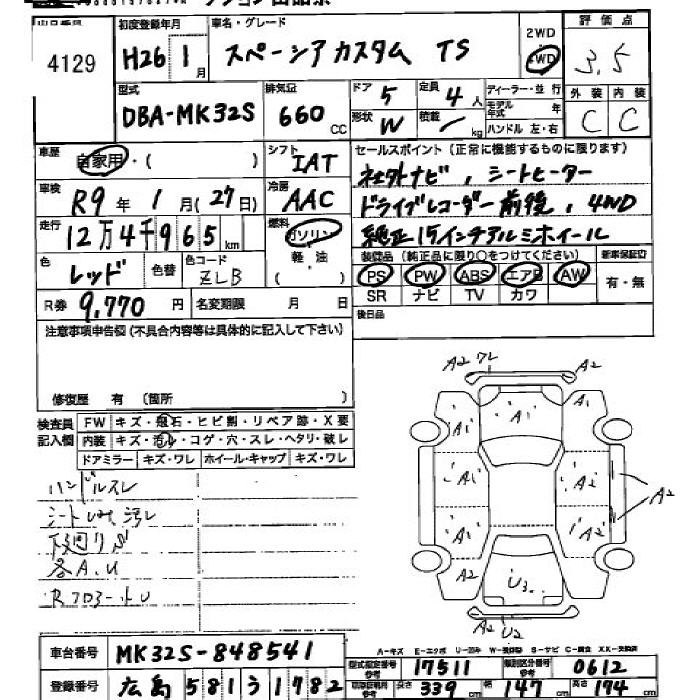 4129
初度登録年月 車名・グレード
H26 1月 スペーシアカスタム TS
2WD
4WD
評価点
3.5
型式 排気量 ドア 定員 ディーラー・並行
DBA-MK32S 660 CC 5 4人
モデル年式 年
形状 積載 ハンドル 左・右
W / kg
外装 内装
C C
車歴 自家用・( )
シフト IAT
セールスポイント(正常に機能するものに限ります)
社外ナビ、シートヒーター
ドライブレコーダー前後、4WD
純正15インチアルミホイール
車検 R9年 1月(27日)
冷房 AAC
走行 12万4千965km
燃料 ガソリン
軽油
( )
色 レッド 色替 色コード ZLB
装備品(純正品に限り○をつけてください) 新車保証書
PS PW ABS エアB AW 有・無
SR ナビ TV カワ
R券 9,770円 名変期限 月 日
後日品
注意事項申告欄(不具合内容等は具体的に記入して下さい)
修復歴 有 (箇所
検査員記入欄
FW キズ・飛石・ヒビ割・リペア跡・X要
内装 キズ・汚れ・コゲ・穴・スレ・ヘタリ・破レ
ドアミラー キズ・ワレ ホイール・キャップ キズ・ワレ
ハンドルスレ
シートしみ、汚レ
下廻りサビ
各A.U
A2 ワレ A2
A1 A1 A1
A1 A2
A2
A1 A2
A2 U3 A2
A2 U2
A-キズ E-エクボ U-凹み W-波 S-サビ C-腐食 XX-交換済
車台番号 MK32S-848541
型式指定番号 参考 17511 類別区分番号 参考 0612
登録番号 広島 581 う 1782
長さ 339 cm 幅 147 cm 高さ 174 cm